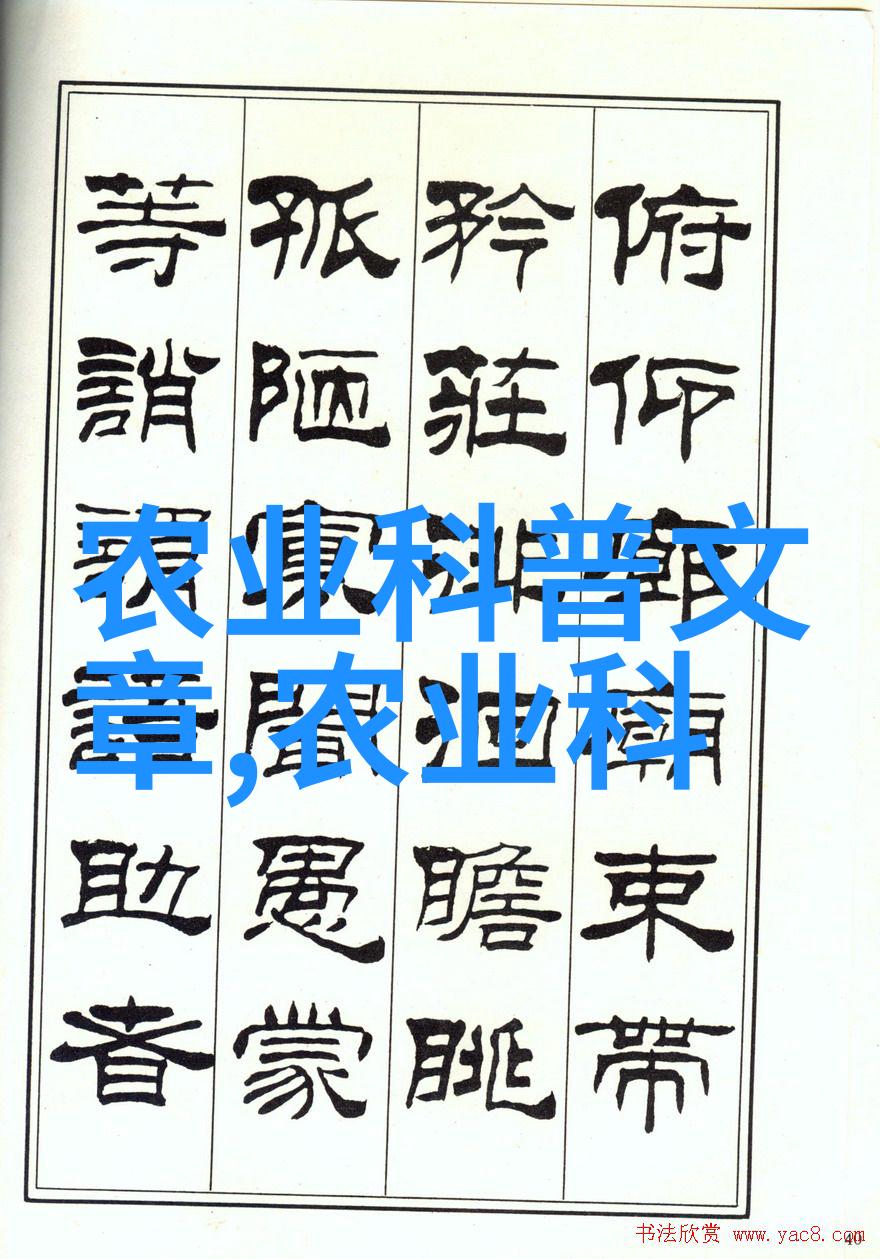 俯仰廊廟束帶
矜莊徘徊瞻眺
孤陋寡聞愚蒙
等誚謂語助者
农业科普文
章,农业科
书法欣赏 www.yac8.com
40